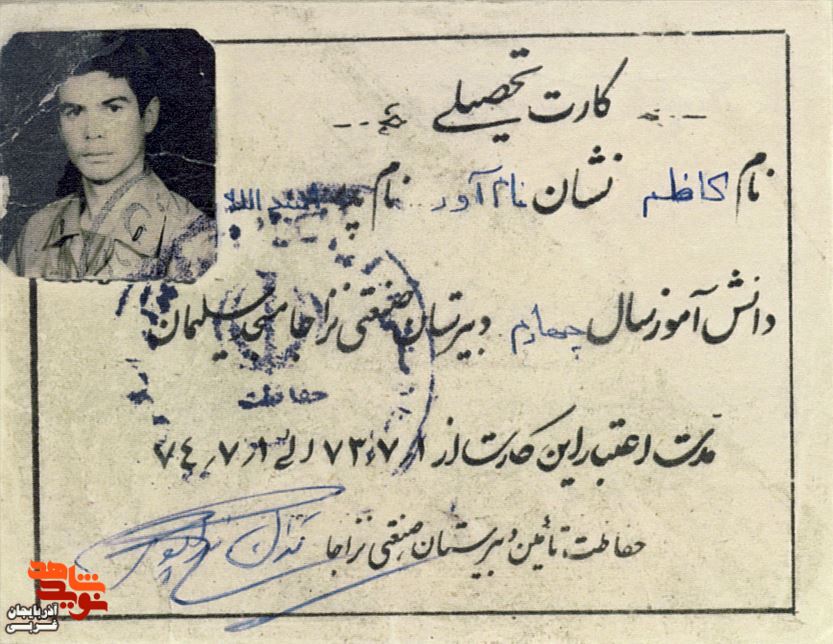 کارت تحصیلی
نام کاظم نشان نام آور نام پدر اسد الله
دانش آموز سال چهارم دبیرستان صنعتی نزاجا مسجد سلیمان
حفاظت
مدت اعتبار این کارت از ۷۳٫۷٫۱ الی ۷۴٫۷٫۱
حفاظت و تأمین دبیرستان صنعتی نزاجا
نوید شاهد
آذربایجان
غربی